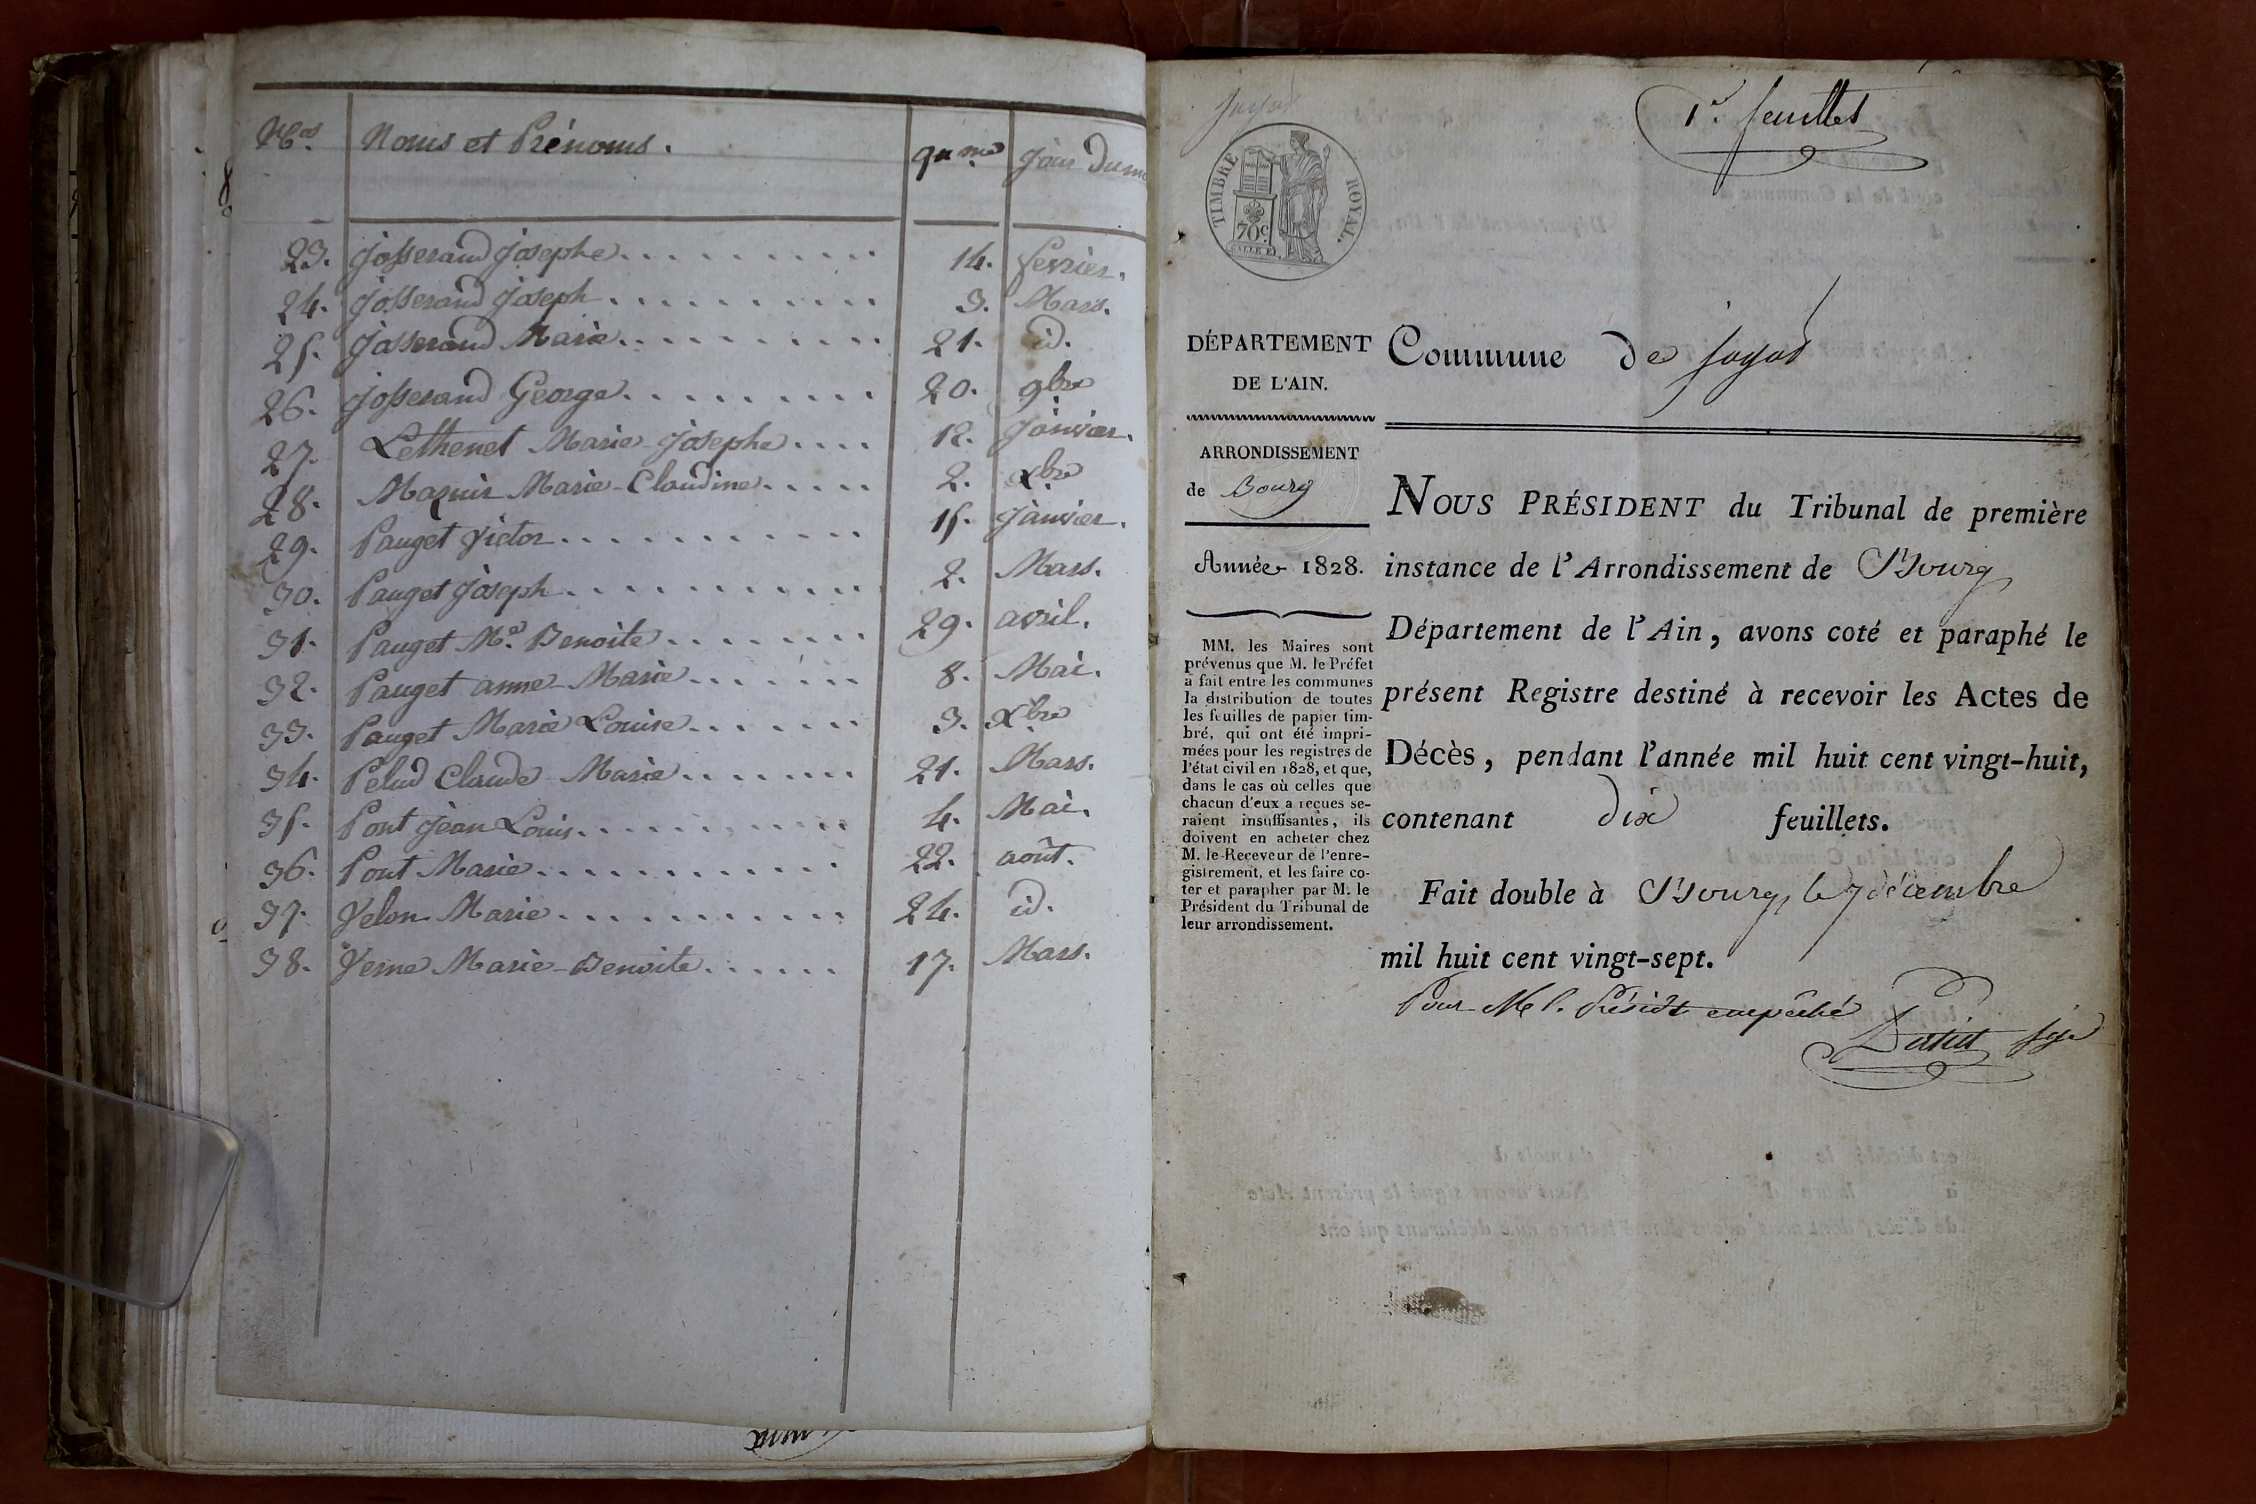 Nos. Noms et Prénoms. qume Jour du mo
23. Josserand Josephe. 14. fevrier.
24. Josserand Joseph 3. Mars.
25. Josserand Marie. 21. id.
26. Josserand George. 20. 9bre
27. Lethenet Marie Josephe 12. Janvier.
28. Marie-Claudine. 2. xbre
29. Pauget Victor 15. Janvier.
30. Pauget Joseph 2. Mars.
31. Pauget Me. Benoite 29. avril.
32. Pauget anne-Marie 8. Mai.
33. Pauget Marie Louise 3. xbre
34. Pelud Claude-Marie 21. Mars.
35. Pont Jean Louis. 4. Mai.
36. Pont Marie 22. août.
37. Velon Marie 24. id.
38. Verne Marie-Benoite. 17. Mars.
1er feuillet
Jayat
TIMBRE ROYAL.
70c.
DÉPARTEMENT
DE L'AIN.
Commune de Jayat
ARRONDISSEMENT
de Bourg
Année 1828.
MM. les Maires sont
prévenus que M. le Préfet
a fait entre les communes
la distribution de toutes
les feuilles de papier tim-
bré, qui ont été impri-
mées pour les registres de
l'état civil en 1828, et que,
dans le cas où celles que
chacun d'eux a reçues se-
raient insuffisantes, ils
doivent en acheter chez
M. le Receveur de l'enre-
gistrement, et les faire co-
ter et parapher par M. le
Président du Tribunal de
leur arrondissement.
NOUS PRÉSIDENT du Tribunal de première
instance de l'Arrondissement de Bourg
Département de l'Ain, avons coté et paraphé le
présent Registre destiné à recevoir les Actes de
Décès, pendant l'année mil huit cent vingt-huit,
contenant dix feuillets.
Fait double à Bourg, le 7 décembre
mil huit cent vingt-sept.
Pour M. l. Présidt empêché